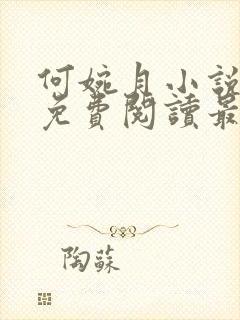 何婉月小說
免費閱讀最
陶蘇